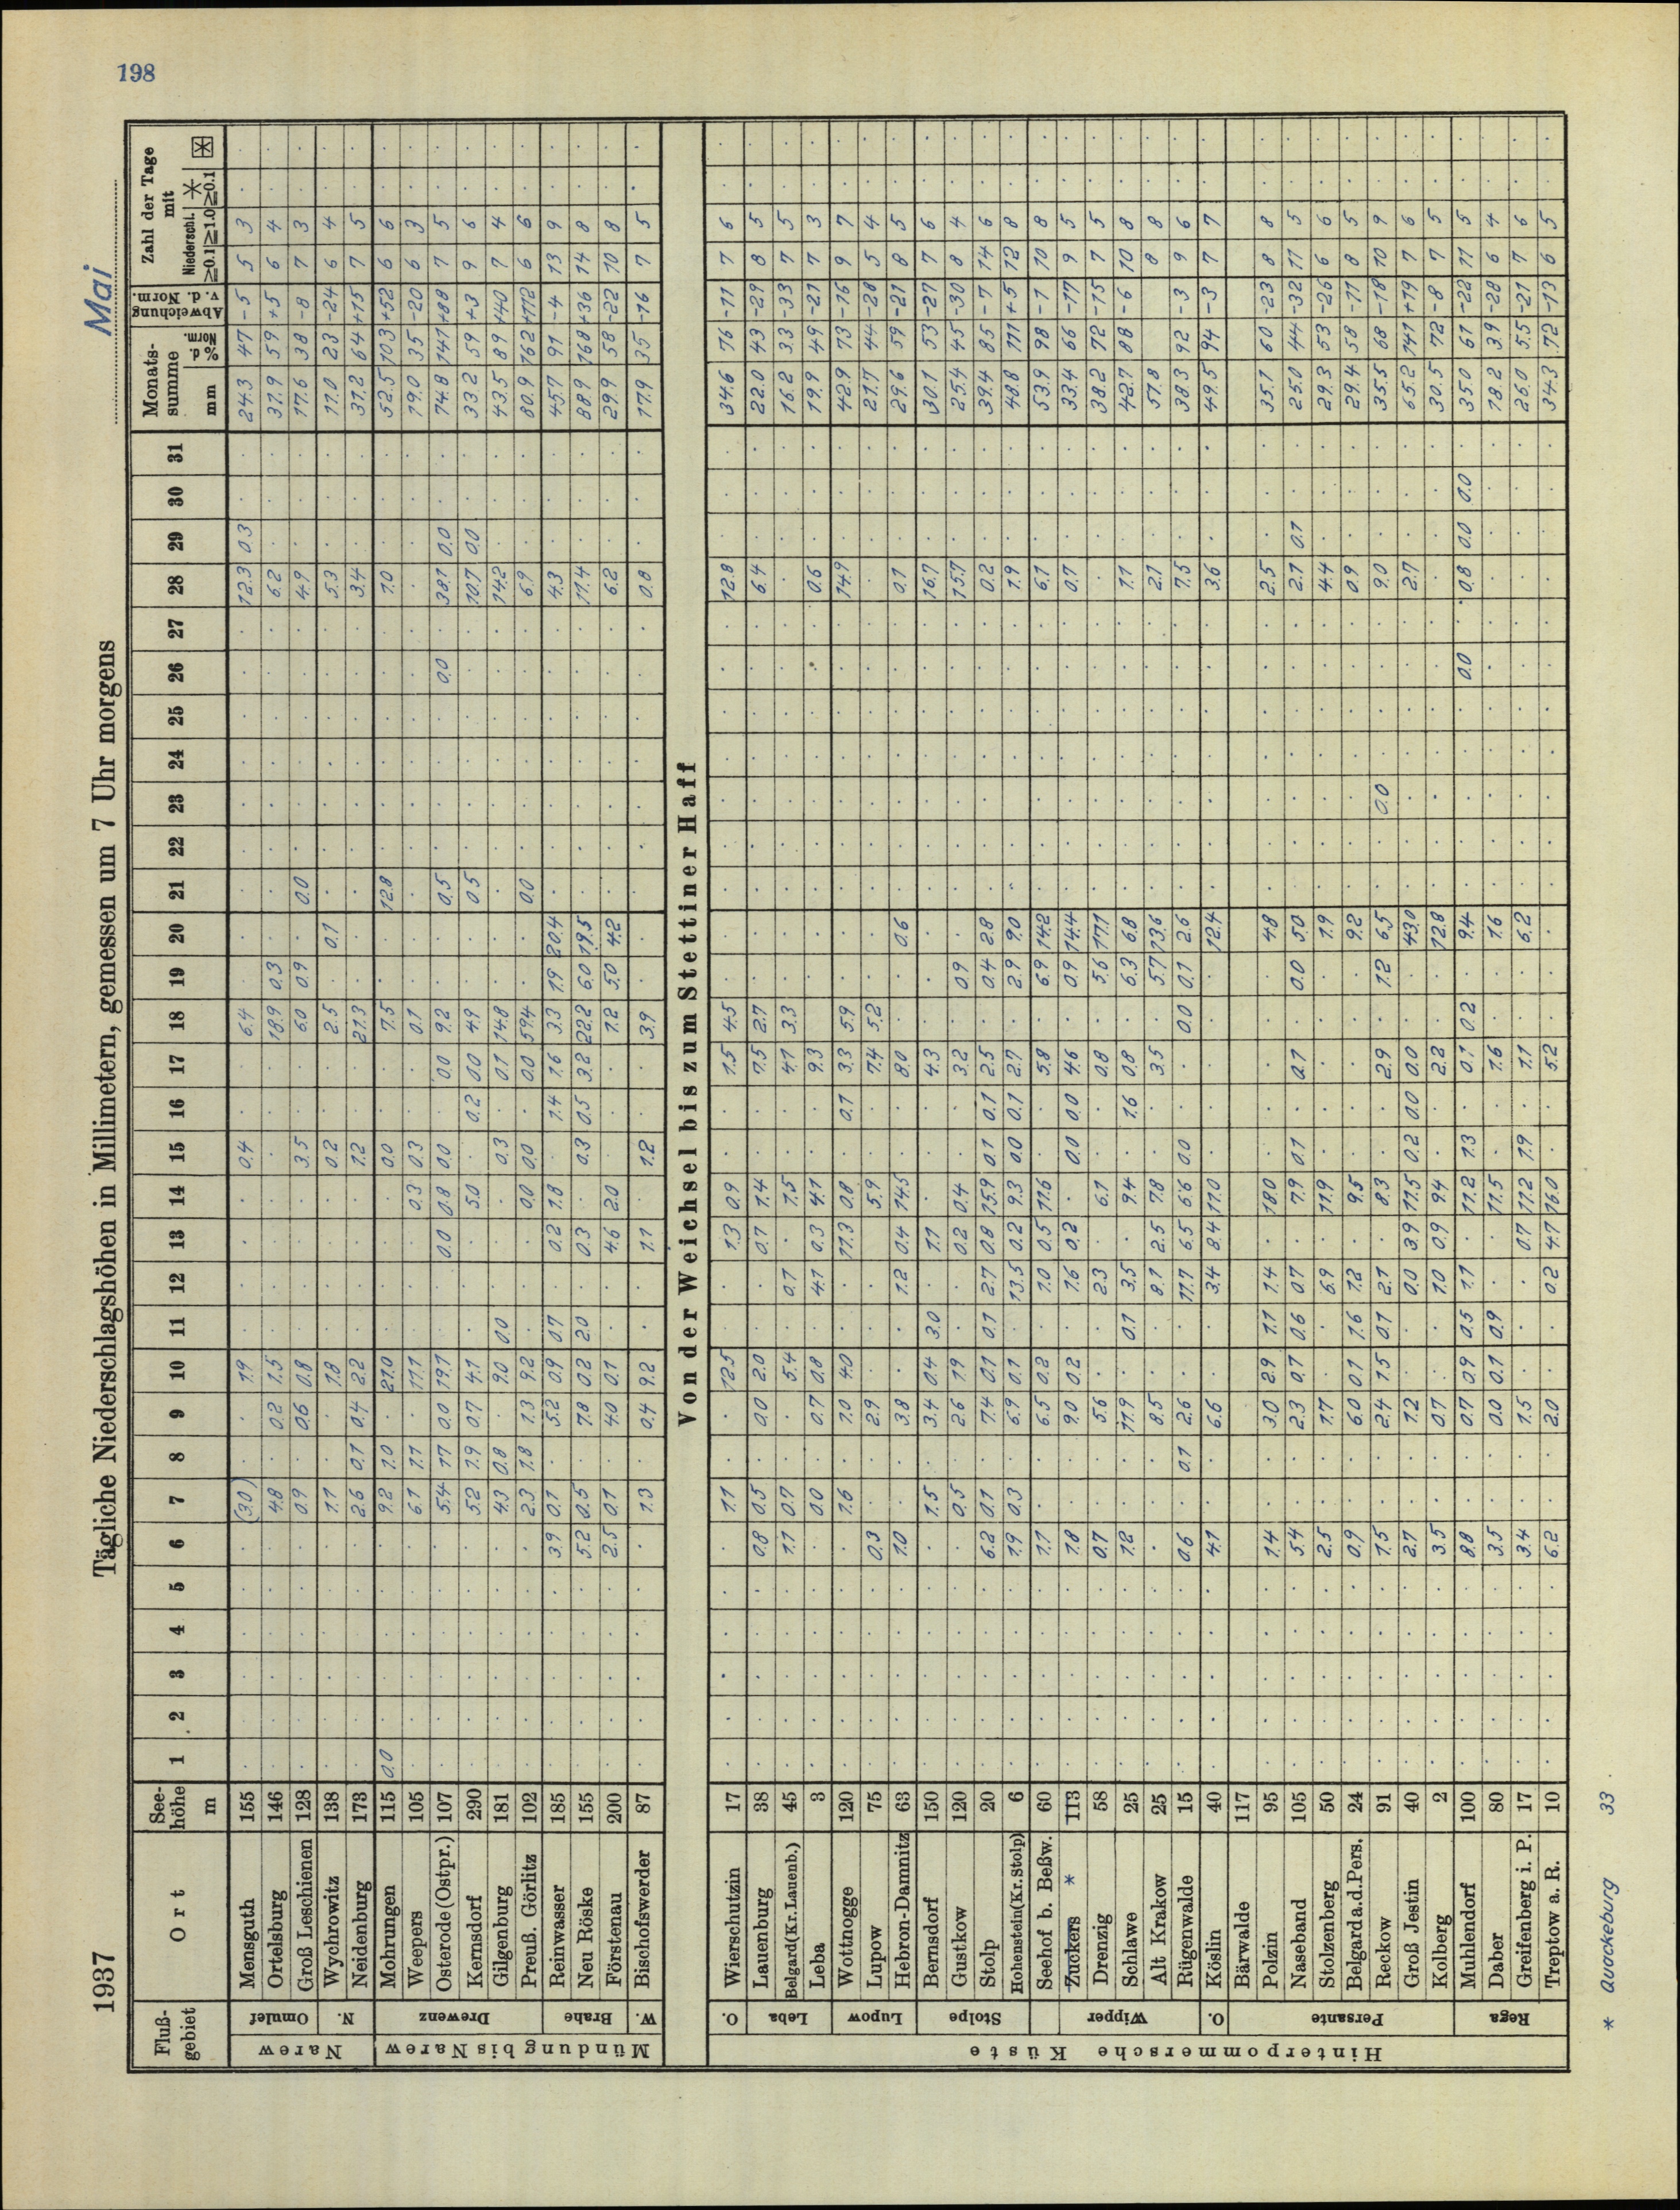 198
1937
Tägliche Niederschlagshöhen in Millimetern, gemessen um 7 Uhr morgens
Mai
Fluß-gebiet Ort See-höhe m 1 2 3 4 5 6 7 8 9 10 11 12 13 14 15 16 17 18 19 20 21 22 23 24 25 26 27 28 29 30 31 Monats-summe mm % d. Norm. Abweichung v. d. Norm. Zahl der Tage mit Niederschl. ≧0.1 ≧1.0 ✳ ≧0.1 ⊠
Narew
Omulef
Mensguth 155 (3.0) 1.9 0.4 6.4 12.3 0.3 24.3 47 -5 5 3
Ortelsburg 146 4.8 0.2 1.5 18.9 0.3 6.2 31.9 59 +5 6 4
Groß Leschienen 128 0.9 0.6 0.8 3.5 6.0 0.9 0.0 4.9 17.6 38 -8 7 3
N.
Wychrowitz 138 1.1 1.8 0.2 2.5 0.1 5.3 11.0 23 -24 6 4
Neidenburg 173 2.6 0.1 0.4 2.2 1.2 21.3 3.4 31.2 64 +15 7 5
Mündung bis Narew
Drewenz
Mohrungen 115 0.0 9.2 1.0 21.0 0.0 7.5 12.8 1.0 52.5 103 +52 6 6
Weepers 105 6.1 1.1 11.1 0.3 0.3 0.1 19.0 35 -20 6 3
Osterode (Ostpr.) 107 5.4 1.7 0.0 19.1 0.0 0.8 0.0 0.0 9.2 0.5 0.0 38.1 0.0 74.8 141 +88 7 5
Kernsdorf 290 5.2 1.9 0.7 4.1 5.0 0.2 0.0 4.9 0.5 10.7 0.0 33.2 59 +3 9 6
Gilgenburg 181 4.3 0.8 9.0 0.0 0.3 0.1 14.8 14.2 43.5 89 +40 7 4
Preuß. Görlitz 102 2.3 1.8 1.3 9.2 0.0 0.0 0.0 59.4 0.0 6.9 80.9 162 +112 6 6
Brahe
Reinwasser 185 3.9 0.1 5.2 0.9 0.7 0.2 1.8 1.4 1.6 3.3 1.9 20.4 4.3 45.7 91 -4 13 9
Neu Röske 155 5.2 0.5 7.8 0.2 2.0 0.3 0.3 0.5 3.2 22.2 6.0 19.5 11.4 88.9 168 +36 14 8
Förstenau 200 2.5 0.1 4.0 0.1 4.6 2.0 1.2 5.0 4.2 6.2 29.9 58 -22 10 8
W.
Bischofswerder 87 1.3 0.4 9.2 1.1 1.2 3.9 0.8 17.9 35 -16 7 5
Von der Weichsel bis zum Stettiner Haff
Hinterpommersche Küste
O.
Wierschutzin 17 1.1 12.5 1.3 0.9 1.5 4.5 12.8 34.6 76 -11 7 6
Leba
Lauenburg 38 0.8 0.5 0.0 2.0 0.7 1.4 7.5 2.7 6.4 22.0 43 -29 8 5
Belgard (Kr. Lauenb.) 45 1.1 0.7 5.4 0.1 1.5 4.1 3.3 16.2 33 -33 7 5
Leba 3 0.0 0.7 0.8 4.1 0.3 4.1 9.3 0.6 19.9 49 -21 7 3
Lupow
Wottnogge 120 1.6 1.0 4.0 11.3 0.8 0.1 3.3 5.9 14.9 42.9 73 -16 9 7
Lupow 75 0.3 2.9 5.9 7.4 5.2 21.7 44 -28 5 4
Hebron-Damnitz 63 1.0 3.8 1.2 0.4 14.5 8.0 0.6 0.1 29.6 59 -21 8 5
Stolpe
Bernsdorf 150 1.5 3.4 0.4 3.0 1.1 4.3 16.7 30.1 53 -27 7 6
Gustkow 120 0.5 2.6 1.9 0.2 0.4 3.2 0.9 15.7 25.4 45 -30 8 4
Stolp 20 6.2 0.1 7.4 0.1 0.1 2.7 0.8 15.9 0.1 0.1 2.5 0.4 2.8 0.2 39.4 85 -7 14 6
Hohenstein (Kr. Stolp) 6 1.9 0.3 6.9 0.1 13.5 0.2 9.3 0.0 0.1 2.7 2.9 9.0 1.9 48.8 111 +5 12 8
Wipper
Seehof b. Beßw. 60 1.1 6.5 0.2 1.0 0.5 11.6 5.8 6.9 14.2 6.1 53.9 98 -1 10 8
Zuckers * 113 1.8 9.0 0.2 1.6 0.2 0.0 0.0 4.6 0.9 14.4 0.7 33.4 66 -17 9 5
Drenzig 58 0.7 5.6 2.3 6.1 0.8 5.6 17.1 38.2 72 -15 7 5
Schlawe 25 1.2 11.9 0.1 3.5 9.4 1.6 0.8 6.3 6.8 1.1 42.7 88 -6 10 8
Alt Krakow 25 8.5 8.1 2.5 7.8 3.5 5.7 13.6 2.1 51.8 8 8
Rügenwalde 15 0.6 0.1 2.6 11.7 6.5 6.6 0.0 0.0 0.1 2.6 7.5 38.3 92 -3 9 6
O.
Köslin 40 4.1 6.6 3.4 8.4 11.0 12.4 3.6 49.5 94 -3 7 7
Persante
Bärwalde 117
Polzin 95 1.4 3.0 2.9 1.1 1.4 18.0 4.8 2.5 35.1 60 -23 8 8
Naseband 105 5.4 2.3 0.7 0.6 0.7 7.9 0.1 0.1 0.0 5.0 2.1 0.1 25.0 44 -32 11 5
Stolzenberg 50 2.5 1.7 6.9 11.9 1.9 4.4 29.3 53 -26 6 6
Belgard a. d. Pers. 24 0.9 6.0 0.1 1.6 1.2 9.5 9.2 0.9 29.4 58 -11 8 5
Reckow 91 1.5 2.4 1.5 0.1 2.1 8.3 2.9 1.2 6.5 0.0 9.0 35.5 68 -18 10 9
Groß Jestin 40 2.7 1.2 0.0 3.9 11.5 0.2 0.0 0.0 43.0 2.7 65.2 141 +19 7 6
Kolberg 2 3.5 0.7 1.0 0.9 9.4 2.2 12.8 30.5 72 -8 7 5
Rega
Muhlendorf 100 8.8 0.7 0.9 0.5 1.1 11.2 1.3 0.1 0.2 9.4 0.0 0.8 0.0 0.0 35.0 61 -22 11 5
Daber 80 3.5 0.0 0.1 0.9 11.5 1.6 1.6 18.2 39 -28 6 4
Greifenberg i. P. 17 3.4 1.5 0.7 11.2 1.9 1.1 6.2 26.0 55 -21 7 6
Treptow a. R. 10 6.2 2.0 0.2 4.7 16.0 5.2 34.3 72 -13 6 5
* Quackeburg 33